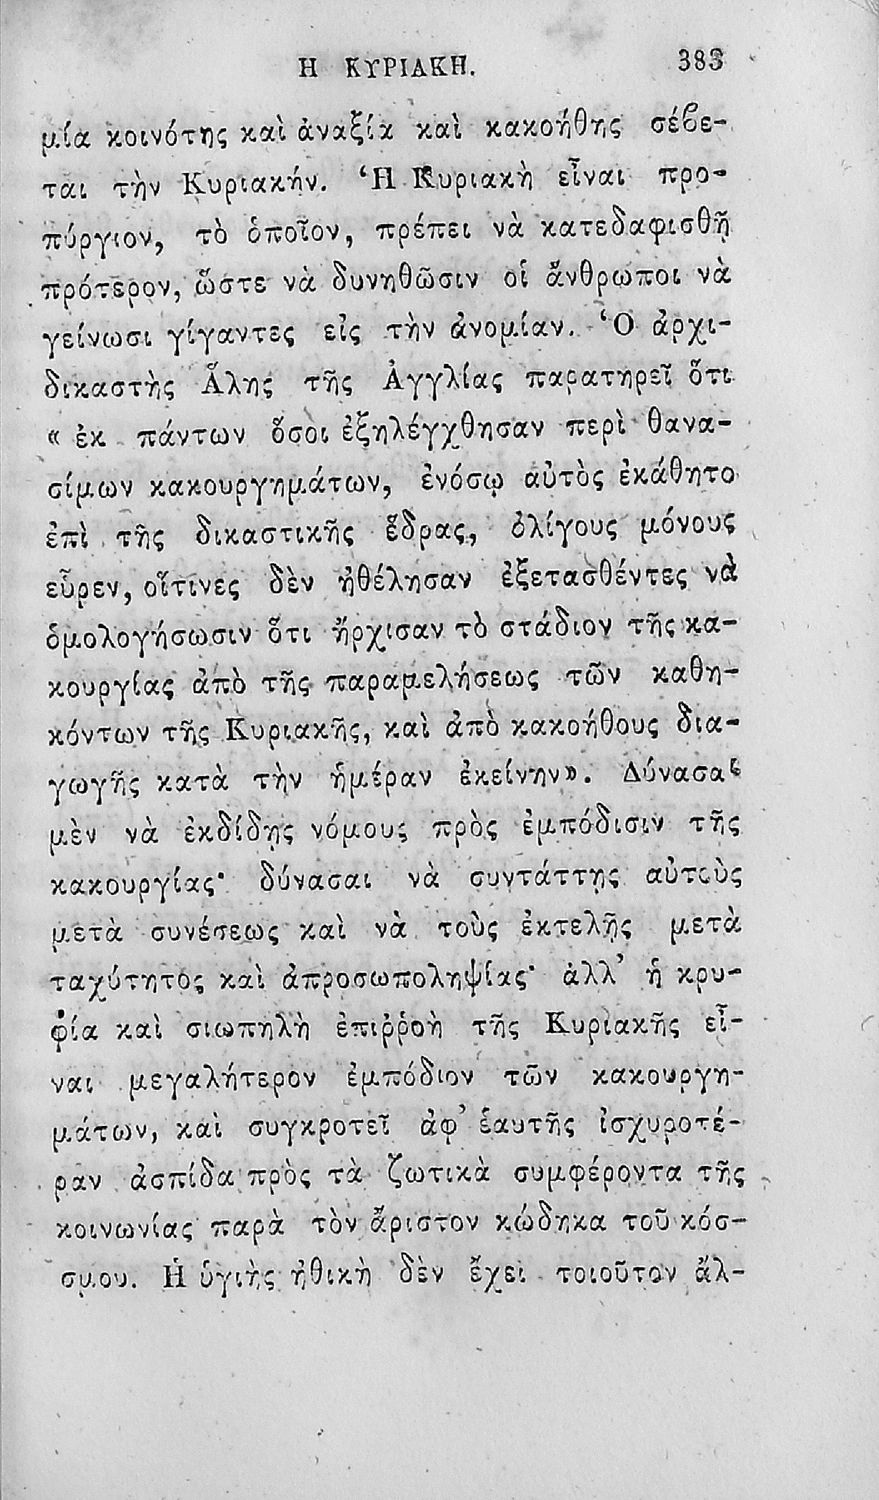 Η ΚΥΡΙΑΚΗ. 383
μία κοινότης καὶ ἀναξία καὶ κακοήθης σέβε-
ται τὴν Κυριακήν. Ἡ Κυριακὴ εἶναι προ-
πύργιον, τὸ ὁποῖον, πρέπει νὰ κατεδαφισθῇ
πρότερον, ὥστε νὰ δυνηθῶσιν οἱ ἄνθρωποι νὰ
γείνωσι γίγαντες εἰς τὴν ἀνομίαν. Ὁ ἀρχι-
δικαστὴς Ἅλης τῆς Ἀγγλίας παρατηρεῖ ὅτι
« ἐκ πάντων ὅσοι ἐξηλέγχθησαν περὶ θανα-
σίμων κακουργημάτων, ἐνόσῳ αὐτὸς ἐκάθητο
ἐπὶ τῆς δικαστικῆς ἕδρας, ὀλίγους μόνους
εὗρεν, οἵτινες δὲν ἠθέλησαν ἐξετασθέντες νὰ
ὁμολογήσωσιν ὅτι ἤρχισαν τὸ στάδιον τῆς κα-
κουργίας ἀπὸ τῆς παραμελήσεως τῶν καθη-
κόντων τῆς Κυριακῆς, καὶ ἀπὸ κακοήθους δια-
γωγῆς κατὰ τὴν ἡμέραν ἐκείνην». Δύνασαι
μὲν νὰ ἐκδίδῃς νόμους πρὸς ἐμπόδισιν τῆς
κακουργίας· δύνασαι νὰ συντάττῃς αὐτοὺς
μετὰ συνέσεως καὶ νὰ τοὺς ἐκτελῇς μετὰ
ταχύτητος καὶ ἀπροσωποληψίας· ἀλλ’ ἡ κρυ-
φία καὶ σιωπηλὴ ἐπιῤῥοὴ τῆς Κυριακῆς εἶ-
ναι μεγαλήτερον ἐμπόδιον τῶν κακουργη-
μάτων, καὶ συγκροτεῖ ἀφ’ ἑαυτῆς ἰσχυροτέ-
ραν ἀσπίδα πρὸς τὰ ζωτικὰ συμφέροντα τῆς
κοινωνίας παρὰ τὸν ἄριστον κώδηκα τοῦ κόσ-
σμου. Ἡ ὑγιὴς ἠθικὴ δὲν ἔχει τοιοῦτον ἄλ-